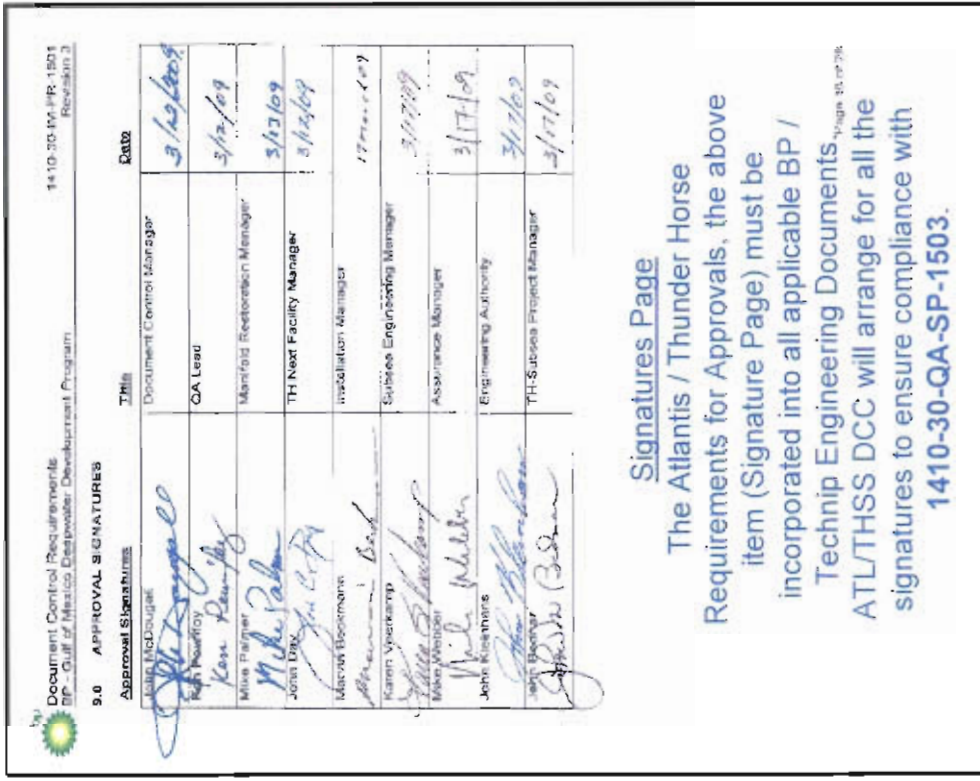 bp
Document Control Requirements 1410-30-IM-PR-1501
BP - Gulf of Mexico Deepwater Development Program Revision 3
9.0 APPROVAL SIGNATURES
Approval Signatures Title Date
John McDougall Document Control Manager 3/12/2009
Pewitfoy QA Lead 3/12/09
Mike Palmer Manifold Restoration Manager 3/13/09
Mike Palmer
John Day TH Next Facility Manager 3/12/09
Marvin Beckmann Installation Manager
Karen Veerkamp Subsea Engineering Manager 3/17/09
Mike Webber Assurance Manager 3/17/09
John Kleinhans Engineering Authority 3/17/09
John Bednar TH-Subsea Project Manager 3/17/09
Signatures Page
The Atlantis / Thunder Horse
Requirements for Approvals, the above
item (Signature Page) must be
incorporated into all applicable BP /
Technip Engineering Documents.
ATL/THSS DCC will arrange for all the
signatures to ensure compliance with
1410-30-QA-SP-1503.